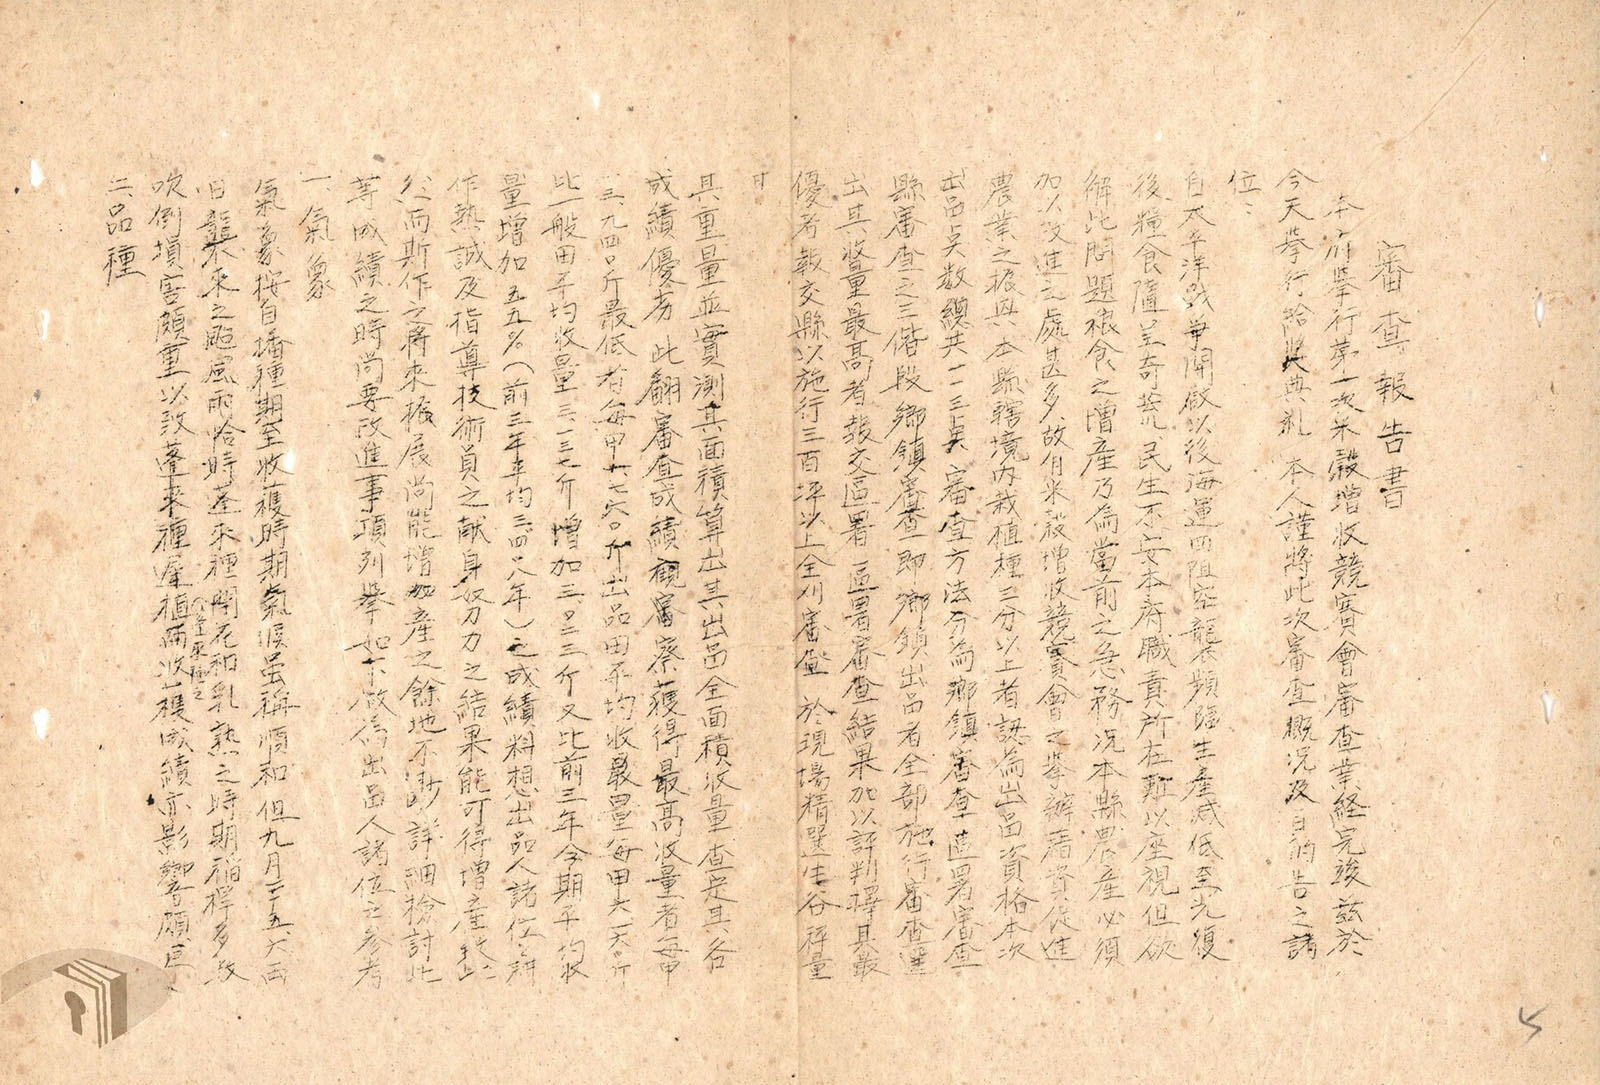 審查報告書
本府舉行第一次米穀增收競賽會審查業経完竣茲於
今天舉行給奬典礼 本人謹將此次審查概況及目的告之諸
位：
自太平洋戰爭開啟以後海運四阻空襲頻臨生產減低至光復
後糧食匱乏奇荒民生不安本府職責所在難以座視但欲
解比問題粮食之增產乃為當前之急務况本縣農產必須
加以改進之處甚多故有米穀增收競賽會之举辦藉資促進
農業之振興凡本縣轄境內栽植種三分以上者認為出品資格本次
出品点数總共一一三点 審查方法分為鄉鎮審查區署審查
縣審查之三偕段鄉鎮審查即鄉鎮出品者全部施行審查選
出其收量最高者報交區署 區署審查結果加以評判擇其最
優者報交縣以施行三百坪以上全刈審查 於現場精選生谷秤量
其重量並實測其面積算出其出品全面積收量查定其各
成績優劣 此翻審查成績觀審察獲得最高收量者每甲
最低者每甲 出品田平均收量每甲
比一般田平均收量三一三七斤增加三〇二三斤又比前三年今期平均收
量增加五五%（前三年平均三四八年）之成績料想出品人諸位之耕
作熱誠及指導技術員之献身努力之結果能可得增產
然而斯作之將來振展尚能增加產之餘地不尠詳細檢討此
等成績之時尚要改進事項列舉如下做為出品人諸位之參考
一、氣象
氣象按自播種期至收穫時期氣候虽稱順和但九月二十五、六両
日襲來之颱風雨恰時蓬來種開花和乳熟之時期稲桿多致
吹倒損害頗重以致蓬來種遲植而收穫成績亦影響頗
二、品種